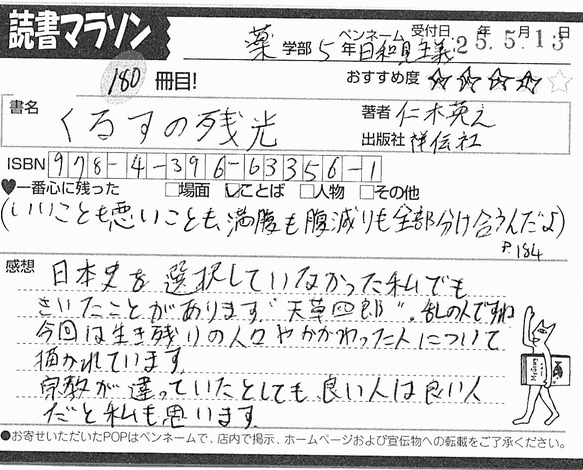 読書マラソン
薬学部5年 ペンネーム 日和見主義 受付日 25年5月13日
180冊目!
おすすめ度 ★★★★☆
書名 くるすの残光
著者 仁木英之
出版社 祥伝社
ISBN 978-4-396-63356-1
♥一番心に残った □場面 ☑ことば □人物 □その他
(いいことも悪いことも、満腹も腹減りも全部分け合うんだよ)
P184
感想 日本史を選択していなかった私でも
きいたことがあります“天草四郎”。乱の人ですね
今回は生き残りの人々やかかわった人について
描かれています。
宗教が違っていたとしても、良い人は良い人
だと私も思います。
●お寄せいただいたPOPはペンネームで、店内で掲示、ホームページおよび宣伝物への転載をご了承ください。